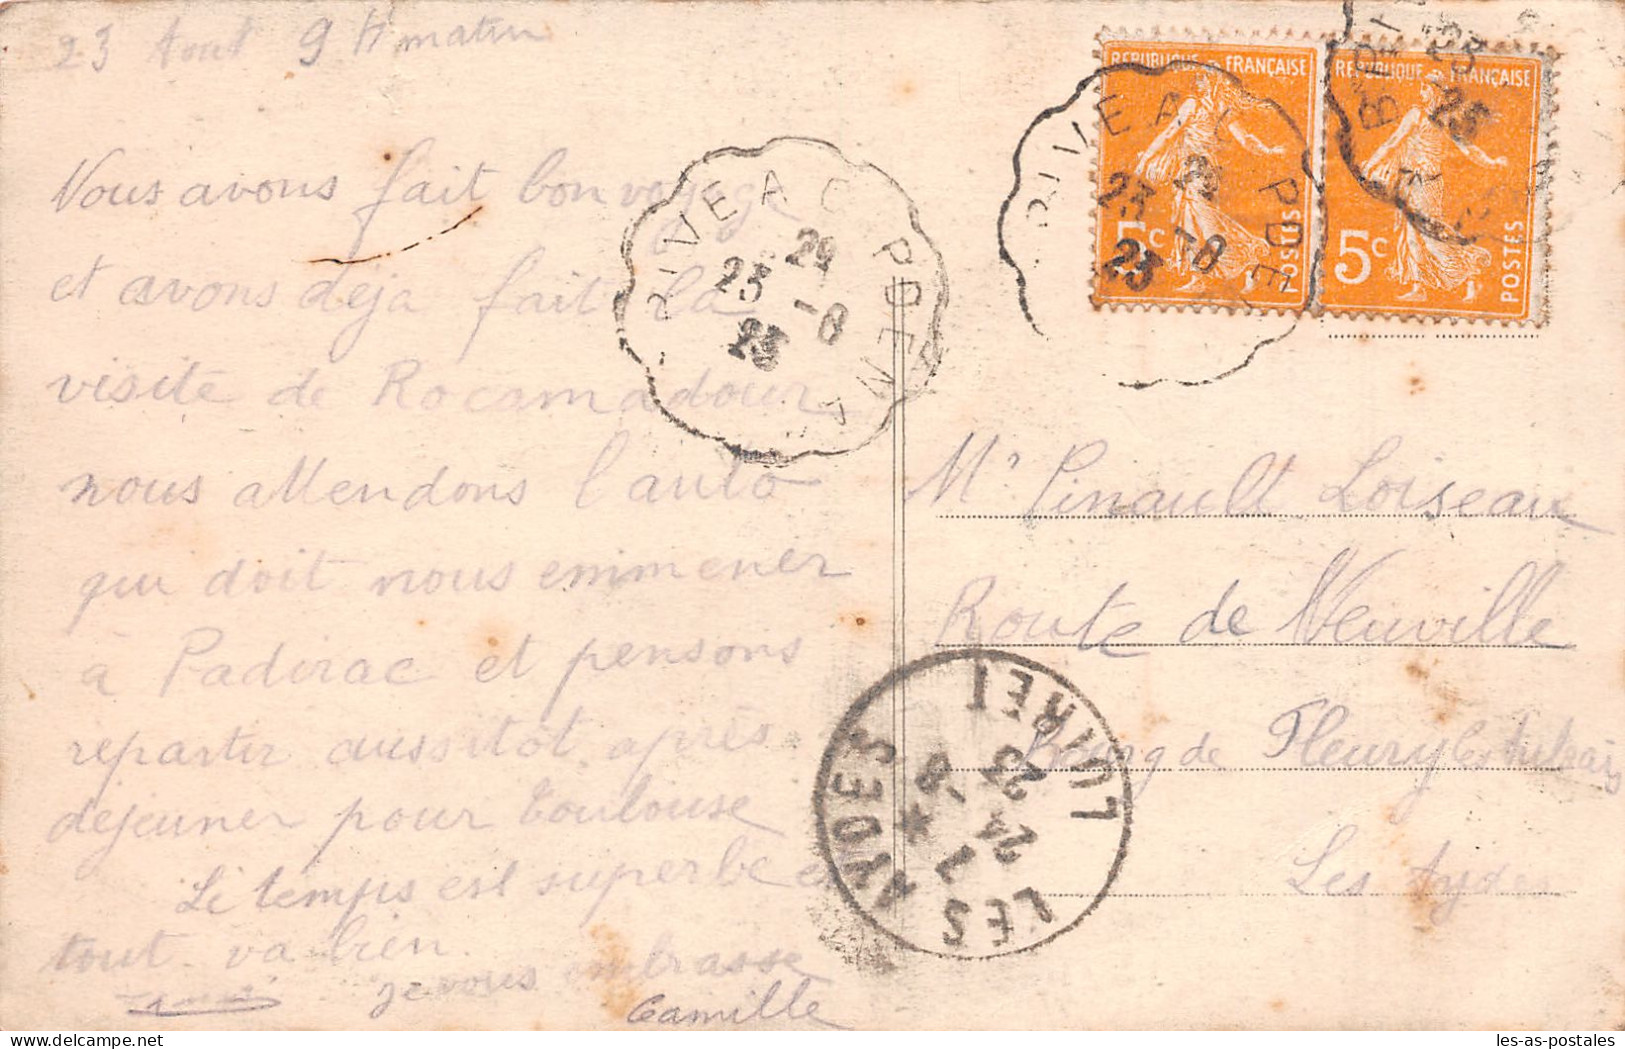 23 Aout 9 H matin
Nous avons fait bon voyage
et avons déja fait la
visite de Rocamadour
nous attendons l'auto
qui doit nous emmener
à Padirac et pensons
repartir aussitot après
déjeuner pour Toulouse
Le temps est superbe et
tout va bien
je vous embrasse
Camille
RIVEAC PDENAC
23 24
-8
23
REPUBLIQUE FRANÇAISE
5c
POSTES
REPUBLIQUE FRANÇAISE
5c
POSTES
Mr Pinault Loiseau
Route de Neuville
Bourg de Fleury les Aubrais
Les Aydes
LES AYDES LOIRET
7 * 24
-8
23
les-as-postales